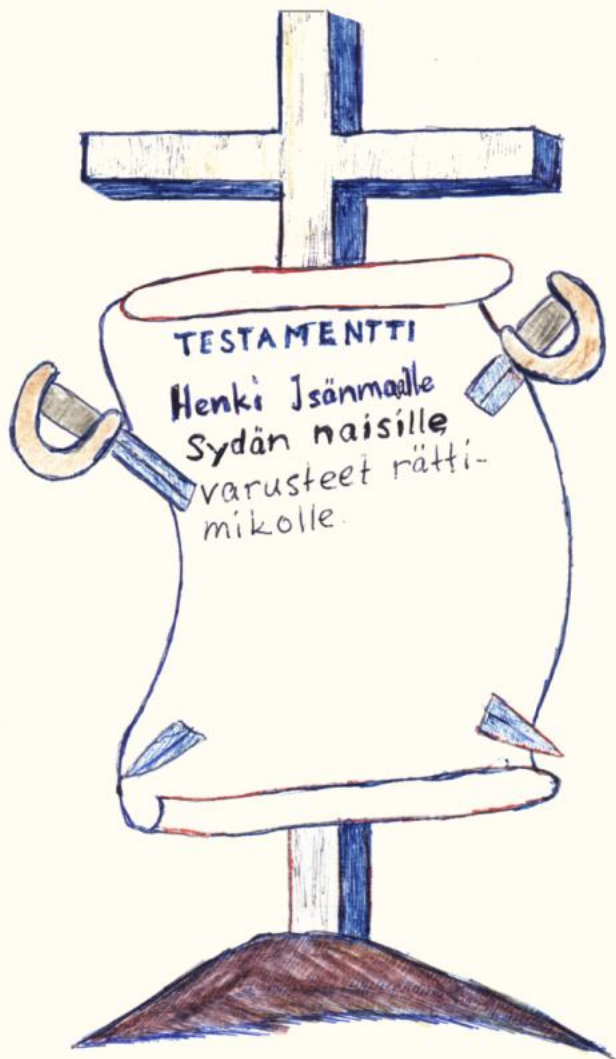 TESTAMENTTI
Henki Isänmaalle
Sydän naisille
varusteet rätti-
mikolle.